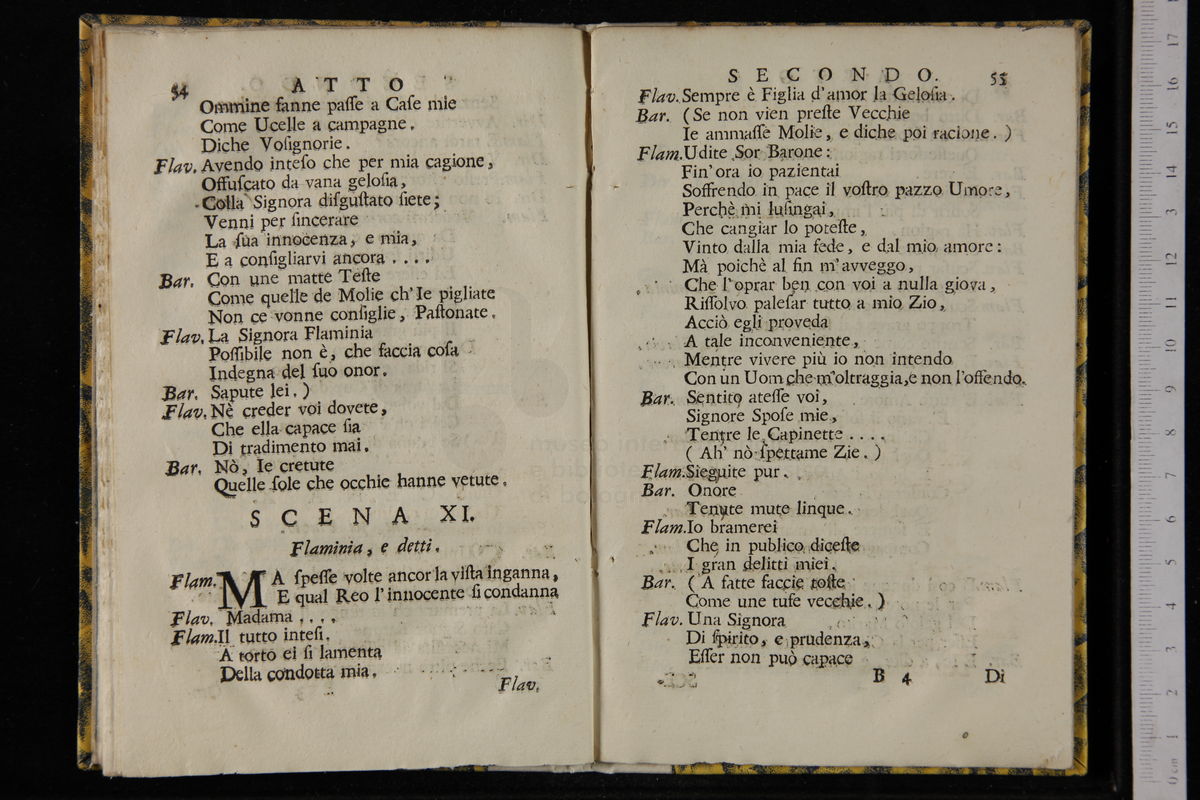 34 ATTO
Ommine fanne paſſe a Caſe mie
Come Ucelle a campagne.
Diche Voſignorie.
Flav. Avendo inteſo che per mia cagione,
Offuſcato da vana geloſia,
Colla Signora diſguſtato ſiete;
Venni per ſincerare
La ſua innocenza, e mia,
E a conſigliarvi ancora . . . .
Bar. Con une matte Teſte
Come quelle de Molie ch'Ie pigliate
Non ce vonne conſiglie, Paſtonate.
Flav. La Signora Flaminia
Poſſibile non è, che faccia coſa
Indegna del ſuo onor.
Bar. Sapute lei. )
Flav. Nè creder voi dovete,
Che ella capace ſia
Di tradimento mai.
Bar. Nò, Ie cretute
Quelle ſole che occhie hanne vetute.
SCENA XI.
Flaminia, e detti.
Flam. MA ſpeſſe volte ancor la viſta inganna,
E qual Reo l'innocente ſi condanna
Flav. Madama . . . .
Flam. Il tutto inteſi.
A torto ei ſi lamenta
Della condotta mia.
Flav.
SECONDO. 55
Flav. Sempre è Figlia d'amor la Geloſia.
Bar. (Se non vien preſte Vecchie
Ie ammaſſe Molie, e diche poi racione. )
Flam. Udite Sor Barone:
Fin'ora io pazientai
Soffrendo in pace il voſtro pazzo Umore,
Perchè mi luſingai,
Che cangiar lo poteſte,
Vinto dalla mia fede, e dal mio amore:
Mà poichè al fin m'avveggo,
Che l'oprar ben con voi a nulla giova,
Riſſolvo paleſar tutto a mio Zio,
Acciò egli proveda
A tale inconveniente,
Mentre vivere più io non intendo
Con un Uom che m'oltraggia,e non l'offendo.
Bar. Sentito ateſſe voi,
Signore Spoſe mie,
Tentre le Capinette . . . .
( Ah' nò ſpettame Zie. )
Flam. Sieguite pur.
Bar. Onore
Tenute mute linque.
Flam. Io bramerei
Che in publico diceſte
I gran delitti miei.
Bar. ( A fatte faccie toſte
Come une tufe vecchie. )
Flav. Una Signora
Di ſpirito, e prudenza,
Eſſer non può capace
B 4 Di